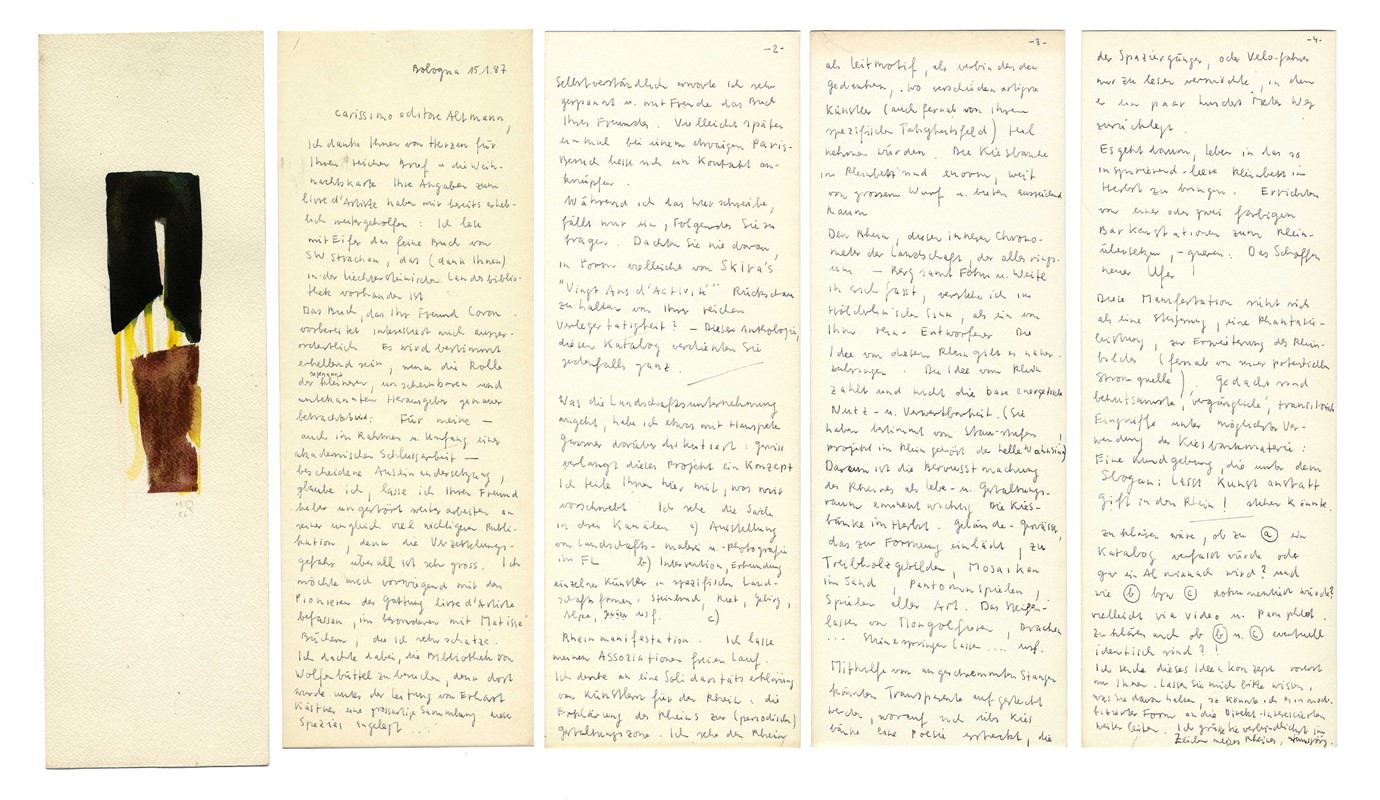 Bologna 15.1.87
carissimo editore Altmann,
Ich danke Ihnen von Herzen für
Ihren reichen Brief u die Weih-
nachtskarte Ihre Angaben zum
livre d'Artiste haben mir bereits erheb-
lich weitergeholfen : Ich lese
mit Eifer das feine Buch von
SW Strachan, das (dank Ihnen)
in der Liechtensteinischen Landesbiblio-
thek vorhanden ist
Das Buch, das Ihr Freund Coron
vorbereitet interessiert mich ausser-
ordentlich Es wird bestimmt
erhellend sein, wenn die Rolle
der sogenannt kleineren, unscheinbaren und
unbekannten Herausgeber genauer
betrachtet wird: Für meine —
auch im Rahmen u Umfang einer
akademischen Schlussarbeit —
bescheidene Auseinandersetzung,
glaube ich, lasse ich Ihren Freund
lieber ungestört weiter arbeiten an
seiner ungleich viel wichtigeren Publi-
kation, denn die Verzettelungs-
gefahr überall ist sehr gross. Ich
möchte mich vorwiegend mit den
Pionieren der Gattung livre d'Artiste
befassen, im besonderen mit Matisse'
Büchern, die ich sehr schätze.
Ich dachte dabei, die Bibliothek von
Wolfenbüttel zu besuchen, denn dort
wurde unter der Leitung von Erhart
Kästner eine grossartige Sammlung dieser
Spezies angelegt ...
-2-
Selbstverständlich erwarte ich sehr
gespannt u. mit Freude das Buch
Ihres Freundes. Vielleicht später
einmal bei einem etwaigen Paris-
Besuch liesse sich ein Kontakt an-
knüpfen.
Während ich das hier schreibe,
fällt mir ein, Folgendes Sie zu
fragen. Dachten Sie nie daran,
in Form vielleicht von Skira's
"Vingt Ans d'Activité" Rückschau
zu halten von Ihrer reichen
Verlegertätigkeit? — Dieser Anthologie,
diesen Katalog verdienten Sie
jedenfalls ganz.
Was die Landschaftsunternehmung
angeht, habe ich etwas mit Hanspeter
Gassner darüber diskutiert : gewiss
verlangt dieses Projekt ein Konzept
Ich teile Ihnen hier mit, was mir
vorschwebt Ich sehe die Sache
in drei Kanälen a) Ausstellung
von Landschafts-malerei u.-photografie
im FL b) Intervention, Erkundung
einzelner Künstler in spezifischen Land-
schaftsformen: Steinbruch, Riet, Gebirg,
Alpe, usf. c)
Rheinmanifestation. Ich lasse
meinen Assoziationen freien Lauf.
Ich denke an eine Solidaritätserklärung
von Künstlern für den Rhein : die
Erklärung des Rheins zur (periodischen)
Gestaltungszone. Ich sehe den Rhein
-3-
als Leitmotif, als verbindenden
Gedanken, wo verschiedenartigste
Künstler (auch fernab von ihrem
spezifischen Tätigkeitsfeld) teil
nehmen würden. Die Kiesbänke
im Rheinbett sind enorm, weit
von grossem Wurf u. bieten ausreichend
Raum
Den Rhein, diesen inneren Chrono-
meter der Landschaft, der alles rings-
um — Berg samt Föhn u. Weite
in sich fasst, verstehe ich im
Hölderlin'schen Sinn, als ein von
Ihm rein- Entworfener Die
Idee von diesem Rhein gilt es näher-
zubringen. Die Idee vom Rhein
zählt und nicht die bare energetische
Nutz- u. Verwertbarkeit. (Sie
haben bestimmt von Stau-stufen,
projekt im Rhein gehört der helle Wahnsinn)
Darum ist die Bewusstmachung
des Rheines als Lebe- u. Gestaltungs-
raum eminent wichtig Die Kies-
bänke im Herbst. gelände-gewässer,
das zur Formung einlädt, zu
Treibholzgebilden, Mosaiken
im Sand, Pantomimspielen,
Spielen aller Art. Das Steigen-
lassen von Mongolfieren, Drachen
... Steine springen lassen .... usf.
Mithilfe von angeschwemmten Stangen
könnten Transparente aufgesteckt
werden, worauf sich übers Kies
bänke eine Poesie erstreckt, die
-4-
der Spaziergänger, oder Velo-fahrer
nur zu lesen vermöchte, in dem
er ein paar hundert Meter Weg
zurücklegt.
Es geht darum, Leben in das so
inspirierend-leere Rheinbett im
Herbst zu bringen. Errichten
von einer oder zwei farbigen
Barkenstationen zum Rhein-
übersetzen, -queren. Das Schaffen
neuer Ufer!
Diese Manifestation sieht sich
als eine Steigerung, eine Phantasie-
leistung, zur Erweiterung des Rhein-
bildes (fernab von einer potentiellen
Stromquelle). Gedacht sind
behutsamste, 'vergängliche', transitorische
Eingriffe unter möglichster Ver-
wendung der Kiesbankmaterie :
Eine Kundgebung, die unter dem
Slogan: Lasst Kunst anstatt
Gift in den Rhein! stehen könnte.
Zu klären wäre, ob zu (a) ein
Katalog verfasst würde oder
gar ein Almanach wird? und
wie (b) bzw (c) dokumentiert würde?
vielleicht via Video u. Pamphlet.
Zu klären auch ob (b) u. (c) eventuell
identisch sind?!
Ich sende dieses Ideenkonzept vorerst
nur Ihnen. Lassen Sie mich bitte wissen,
was Sie davon halten, so könnte ich es in modi-
fizierter Form an die Direkt-Interessierten
weiter leiten. Ich grüsse Sie verbindlichst im
Zeichen meines Rheines, Hansjörg.